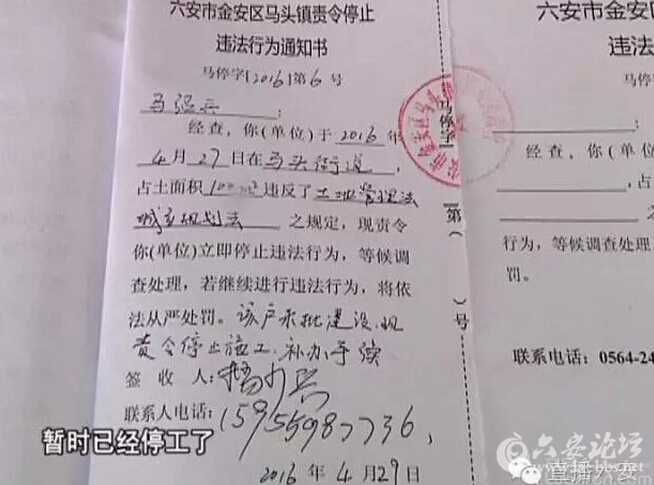 六安市金安区马头镇责令停止
违法行为通知书
马停字[2016]第6号
马强兵:
经查,你(单位)于2016年
4月27日在马头街道,
占土面积100m²违反了土地管理法
城乡规划法之规定,现责令
你(单位)立即停止违法行为,等候调
查处理,若继续进行违法行为,将依
法从严处罚。该户未批建设,现
责令停止施工、补办手续
签收人:
联系人电话:15955987736,
2016年4月29日
马停字
第(
)号
六安市金安区
违法
马停字
经查,你(单
,占
行为,等候调查处理,
罚。
联系电话:0564-24
暂时已经停工了
六安论坛
直播六安